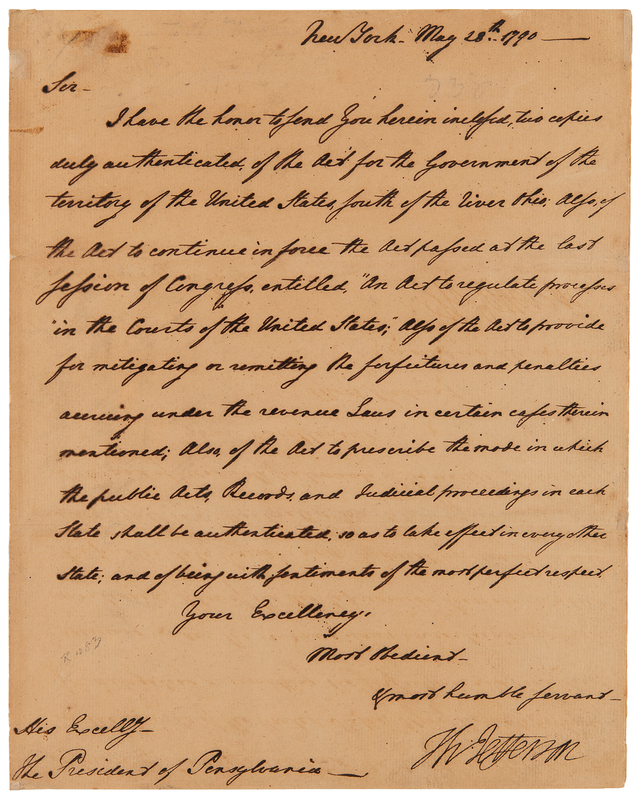 New York. May 28th. 1790
Sir
I have the honor to send You herein inclosed, two copies
duly authenticated, of the Act for the Government of the
territory of the United States, south of the river Ohio; Also, of
the Act to continue in force the Act passed at the last
session of Congress, entitled, "An Act to regulate processes
"in the Courts of the United States;" Also of the Act to provide
for mitigating or remitting the forfeitures and penalties
accruing under the revenue Laws in certain cases therein
mentioned; Also, of the Act to prescribe the mode in which
the public Acts, Records, and Judicial proceedings in each
State shall be authenticated, so as to take effect in every other
State; and of being with sentiments of the most perfect respect
Your Excellency's
Most Obedient
& most humble servant
Th: Jefferson
His Excelly
The President of Pensylvania